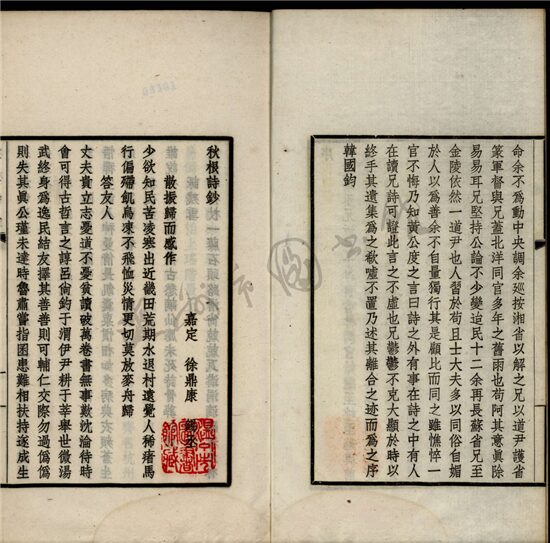 命余不爲動中央調余巡按湘省以解之兄以道尹護省
篆軍督與兄蓋北洋同官多年之舊雨也苟阿其意眞除
易易耳兄堅持公論不少變迨民十二余再長蘇省兄至
金陵依然一道尹也人習於苟且士大夫多以同俗自媚
於人以爲善余不自量獨行其是顧比而同之雖憔悴一
官不悔乃知黃公度之言曰詩之外有事在詩之中有人
在讀兄詩可證此言之不虛也兄鬱鬱不克大顯於時以
終手其遺集爲之欷歔不置乃述其離合之迹而爲之序
韓國鈞
秋根詩鈔
嘉定 徐鼎康
散振歸而感作
少欲知民苦凌寒出近畿田荒期水退村遠覺人稀瘏馬
行偏殢飢鳥凍不飛恤災情更切莫放麥舟歸
答友人
丈夫貴立志憂道不憂貧讀破萬卷書無事歎沈淪待時
會可得古哲言之諄呂尙釣于渭伊尹耕于莘舉世微湯
武終身爲逸民結友擇其善善則可輔仁交際勿過僞僞
則失其眞公瑾未達時魯肅嘗指囷患難相扶持遂成生